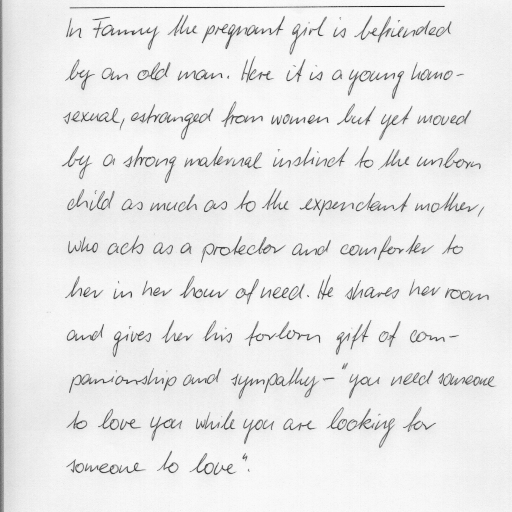 In Fanny the pregnant girl is befriended
by an old man. Here it is a young homo-
sexual, estranged from women but yet moved
by a strong maternal instinct to the unborn
child as much as to the expendant mother,
who acts as a protector and comforter to
her in her hour of need. He shares her room
and gives her his forlorn gift of com-
panionship and sympathy - "you need someone
to love you while you are looking for
someone to love".